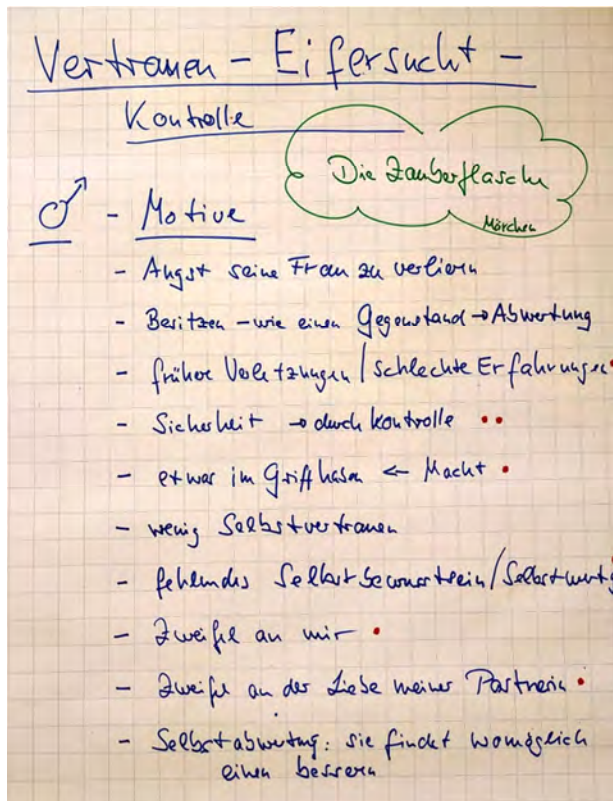 Vertrauen - Eifersucht -
Kontrolle
Die Zauberflasche
Märchen
♂ - Motive
- Angst seine Frau zu verlieren
- Besitzen - wie einen Gegenstand → Abwertung
- frühere Verletzungen / schlechte Erfahrungen •
- Sicherheit → durch Kontrolle • •
- etwas im Griff haben ← Macht •
- wenig Selbstvertrauen
- fehlendes Selbstbewusstsein / Selbstwertg
- Zweifel an mir •
- Zweifel an der Liebe meiner Partnerin •
- Selbstabwertung: sie findet womöglich
einen bessern